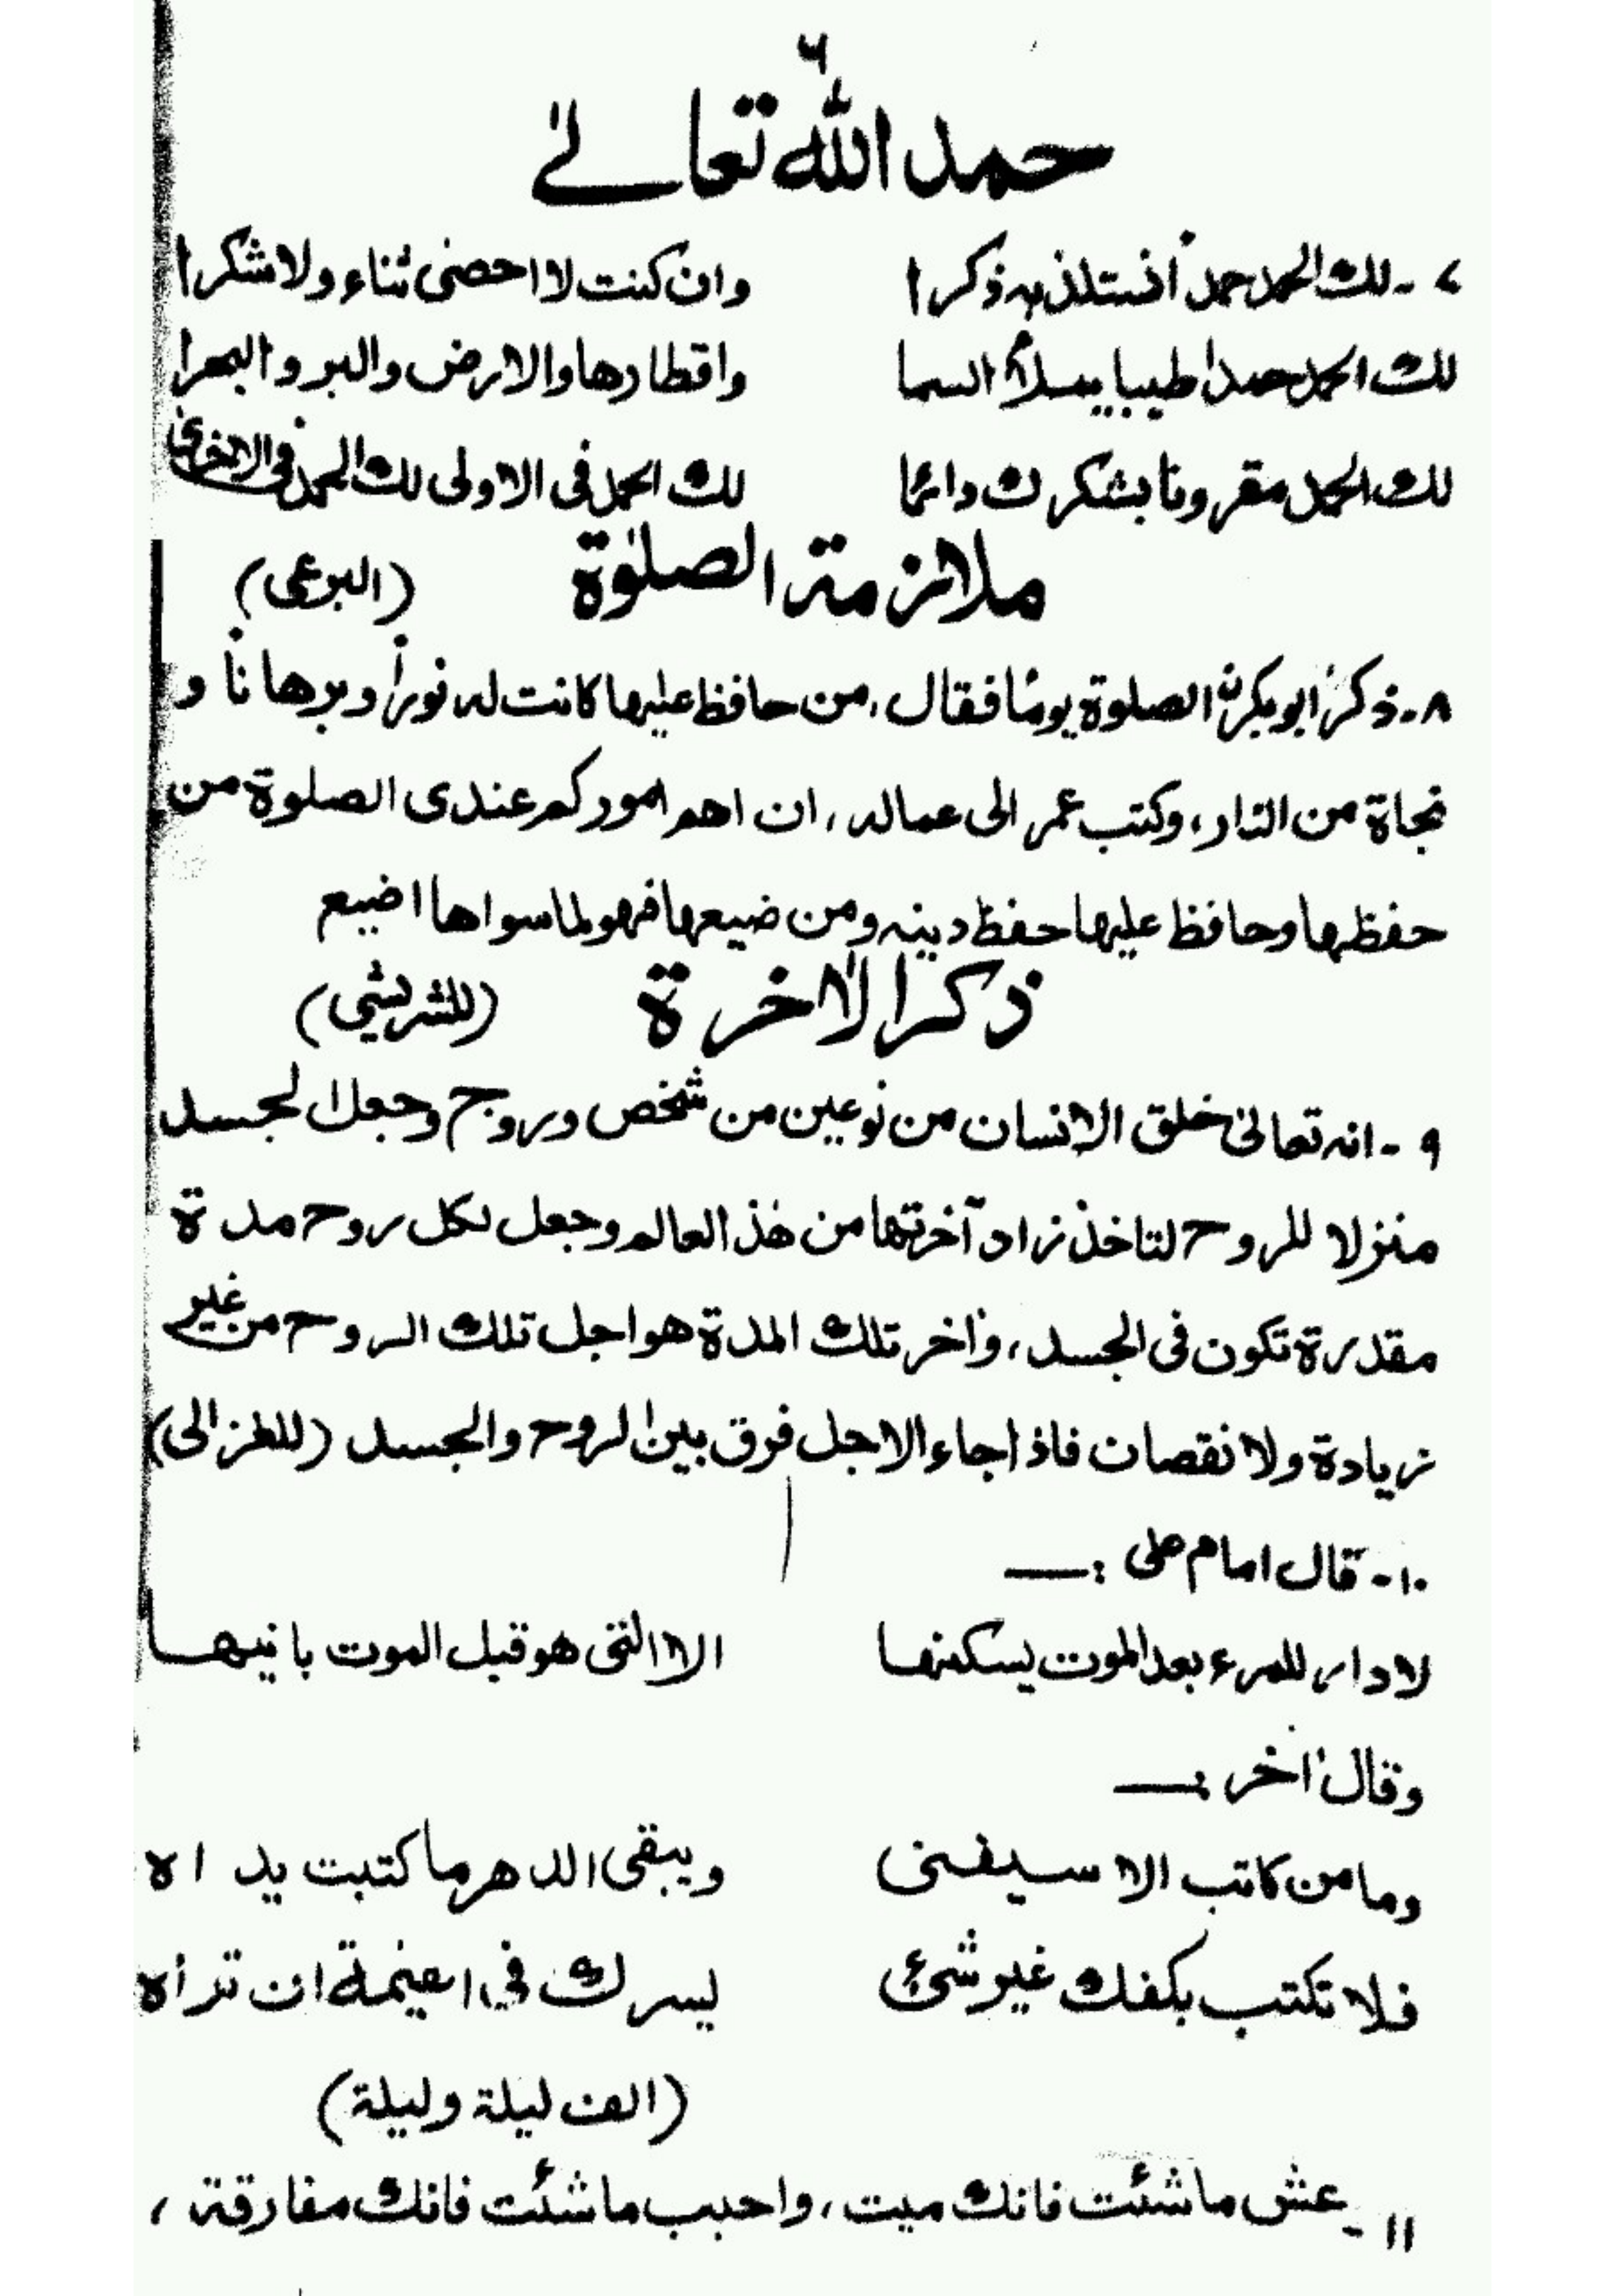 ٦
حمد الله تعالىٰ
٧ - لك الحمد حمداً نستلذ به ذكرا وان كنت لا احصى ثناء ولا شكرا
لك الحمد حمدا طيبا يملأ السما واقطارها والارض والبر والبحرا
لك الحمد مقرونا بشكرك دائما لك الحمد فى الاولى لك الحمد فى الاخرىٰ
ملازمة الصلوٰة (البرعى)
٨ - ذكر ابو بكرؓ الصلوة يومًا فقال، من حافظ عليها كانت له نوراً وبرهانًا و
نجاة من النار، وكتب عمر الى عماله، ان اهم اموركم عندى الصلوة من
حفظها وحافظ عليها حفظ دينه ومن ضيعها فهو لما سواها اضيع
ذكر الاٰخرة (للشريشي)
٩ - انه تعالىٰ خلق الانسان من نوعين من شخص وروح وجعل الجسد
منزلا للروح لتاخذ زاد آخرتها من هٰذ العالم وجعل لكل روح مدة
مقدرة تكون فى الجسد، وٰاخر تلك المدة هو اجل تلك الروح من غير
زيادة ولا نقصان فاذا جاء الاجل فرق بين الروح والجسد (للغزالى)
١٠ - قال امام على :—
لا دار للمرء بعد الموت يسكنها الا التى هو قبل الموت بانيها
وقال اٰخر :—
وما من كاتب الا سيفنى ويبقى الدهر ما كتبت يداه
فلا تكتب بكفك غير شئ يسرك في ان تراه
(الف ليلة وليلة)
١١ - عش ما شئت فانك ميت، واحبب ما شئت فانك مفارقة،